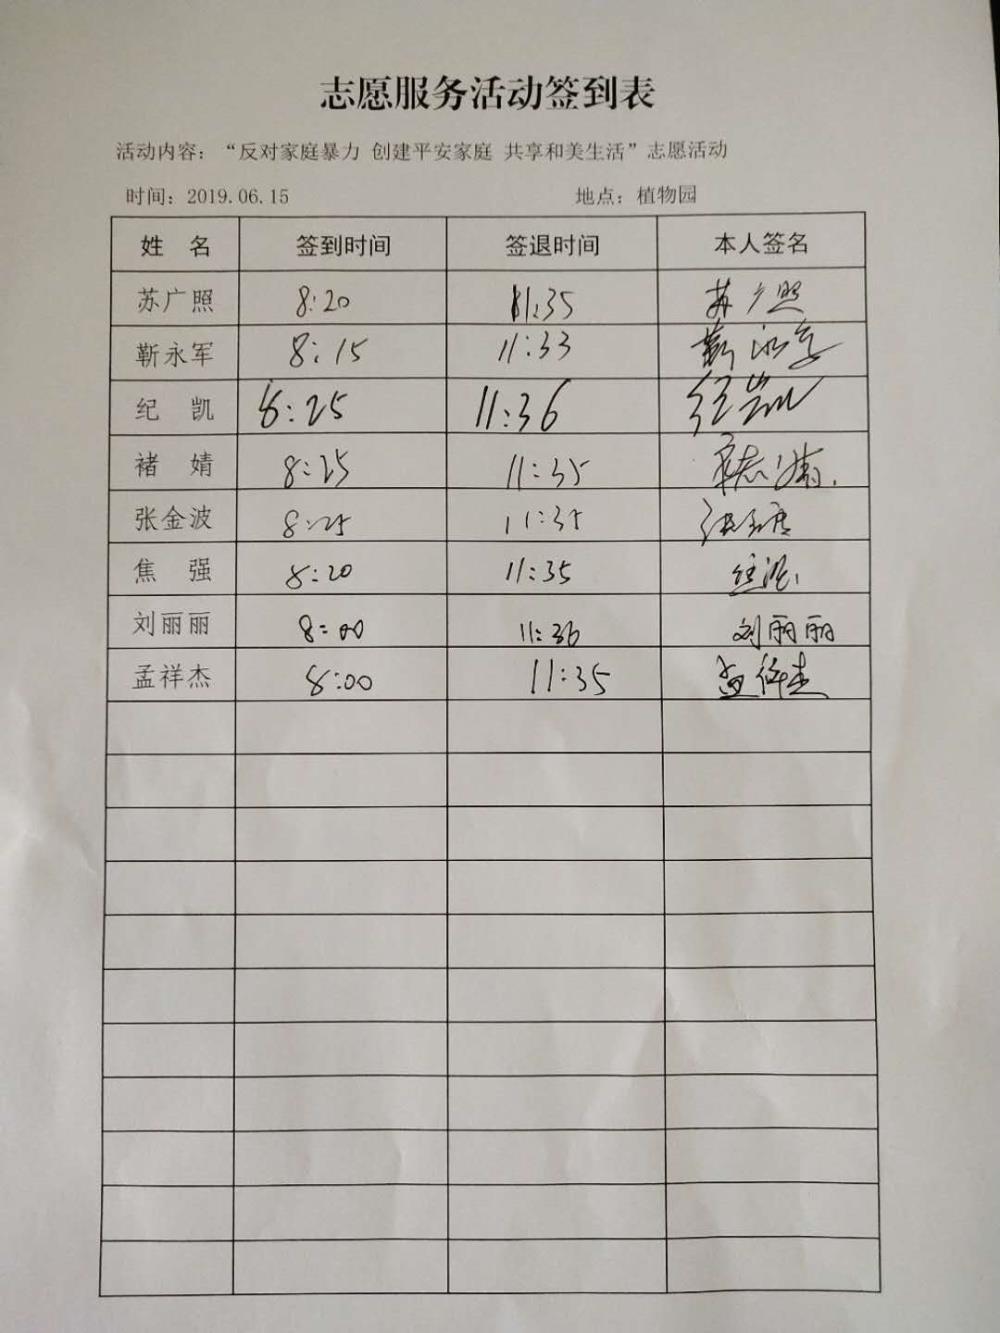 志愿服务活动签到表
活动内容：“反对家庭暴力 创建平安家庭 共享和美生活”志愿活动
时间：2019.06.15 地点：植物园
姓 名 签到时间 签退时间 本人签名
苏广照 8:20 11:35 苏广照
靳永军 8:15 11:33 靳永军
纪 凯 8:25 11:36 纪凯
褚 婧 8:25 11:35 褚婧
张金波 8:25 11:35 张金波
焦 强 8:20 11:35 焦强
刘丽丽 8:00 11:36 刘丽丽
孟祥杰 8:00 11:35 孟祥杰